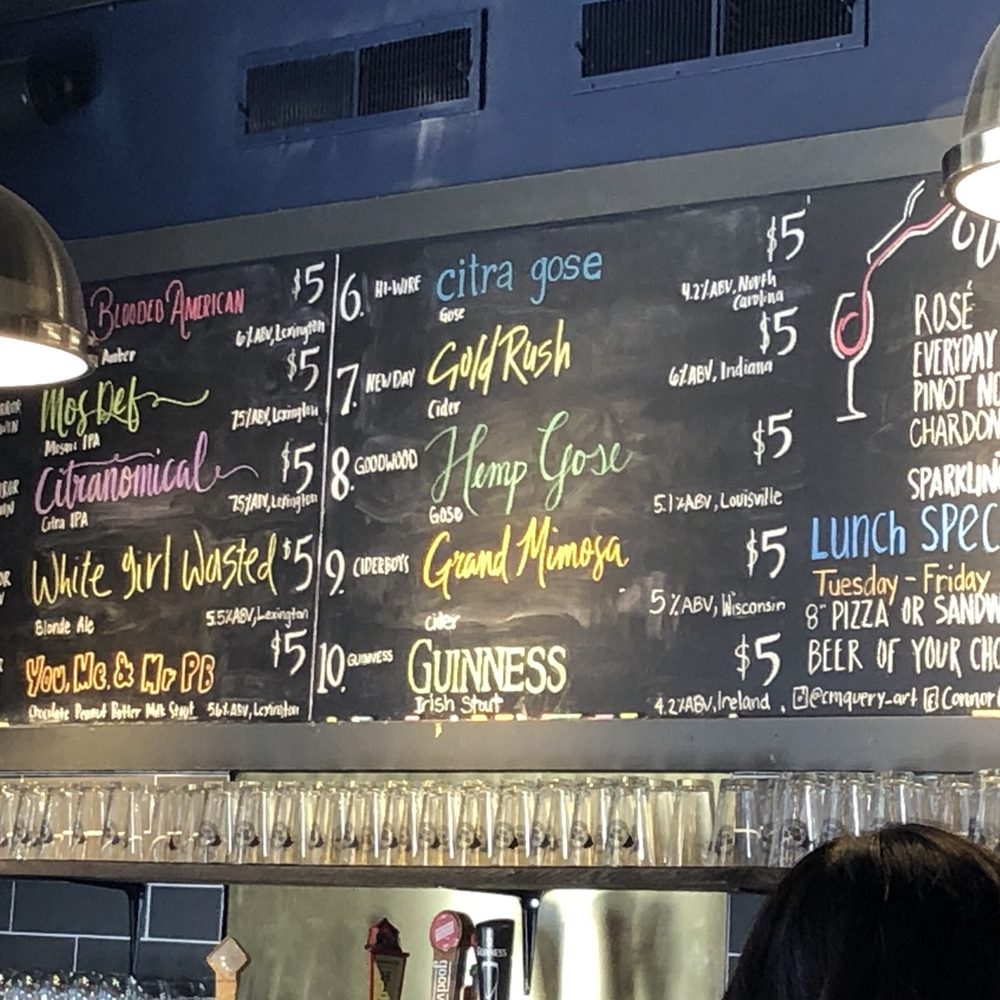 Blooded American $5
6%ABV, Lexington
Amber
Mos Def $5
7.5%ABV, Lexington
Mosaic IPA
Citranomical $5
7.5%ABV, Lexington
Citra IPA
White girl Wasted $5
5.5%ABV, Lexington
Blonde Ale
You, Me, & Mr PB $5
Chocolate Peanut Butter Milk Stout 5.6%ABV, Lexington
6. HI-WIRE citra gose $5
4.2%ABV, North
Carolina
Gose
7. NEW DAY Gold Rush $5
6%ABV, Indiana
Cider
8. GOODWOOD Hemp Gose $5
5.1%ABV, Louisville
Gose
9. CIDERBOYS Grand Mimosa $5
5%ABV, Wisconsin
cider
10. GUINNESS GUINNESS $5
Irish Stout 4.2%ABV, Ireland
ROSÉ
EVERYDAY
PINOT NO
CHARDON
SPARKLIN
LUNCH SPEC
Tuesday - Friday
8" PIZZA OR SANDW
BEER OF YOUR CHO
@cmquery_art Connor
GUINNESS